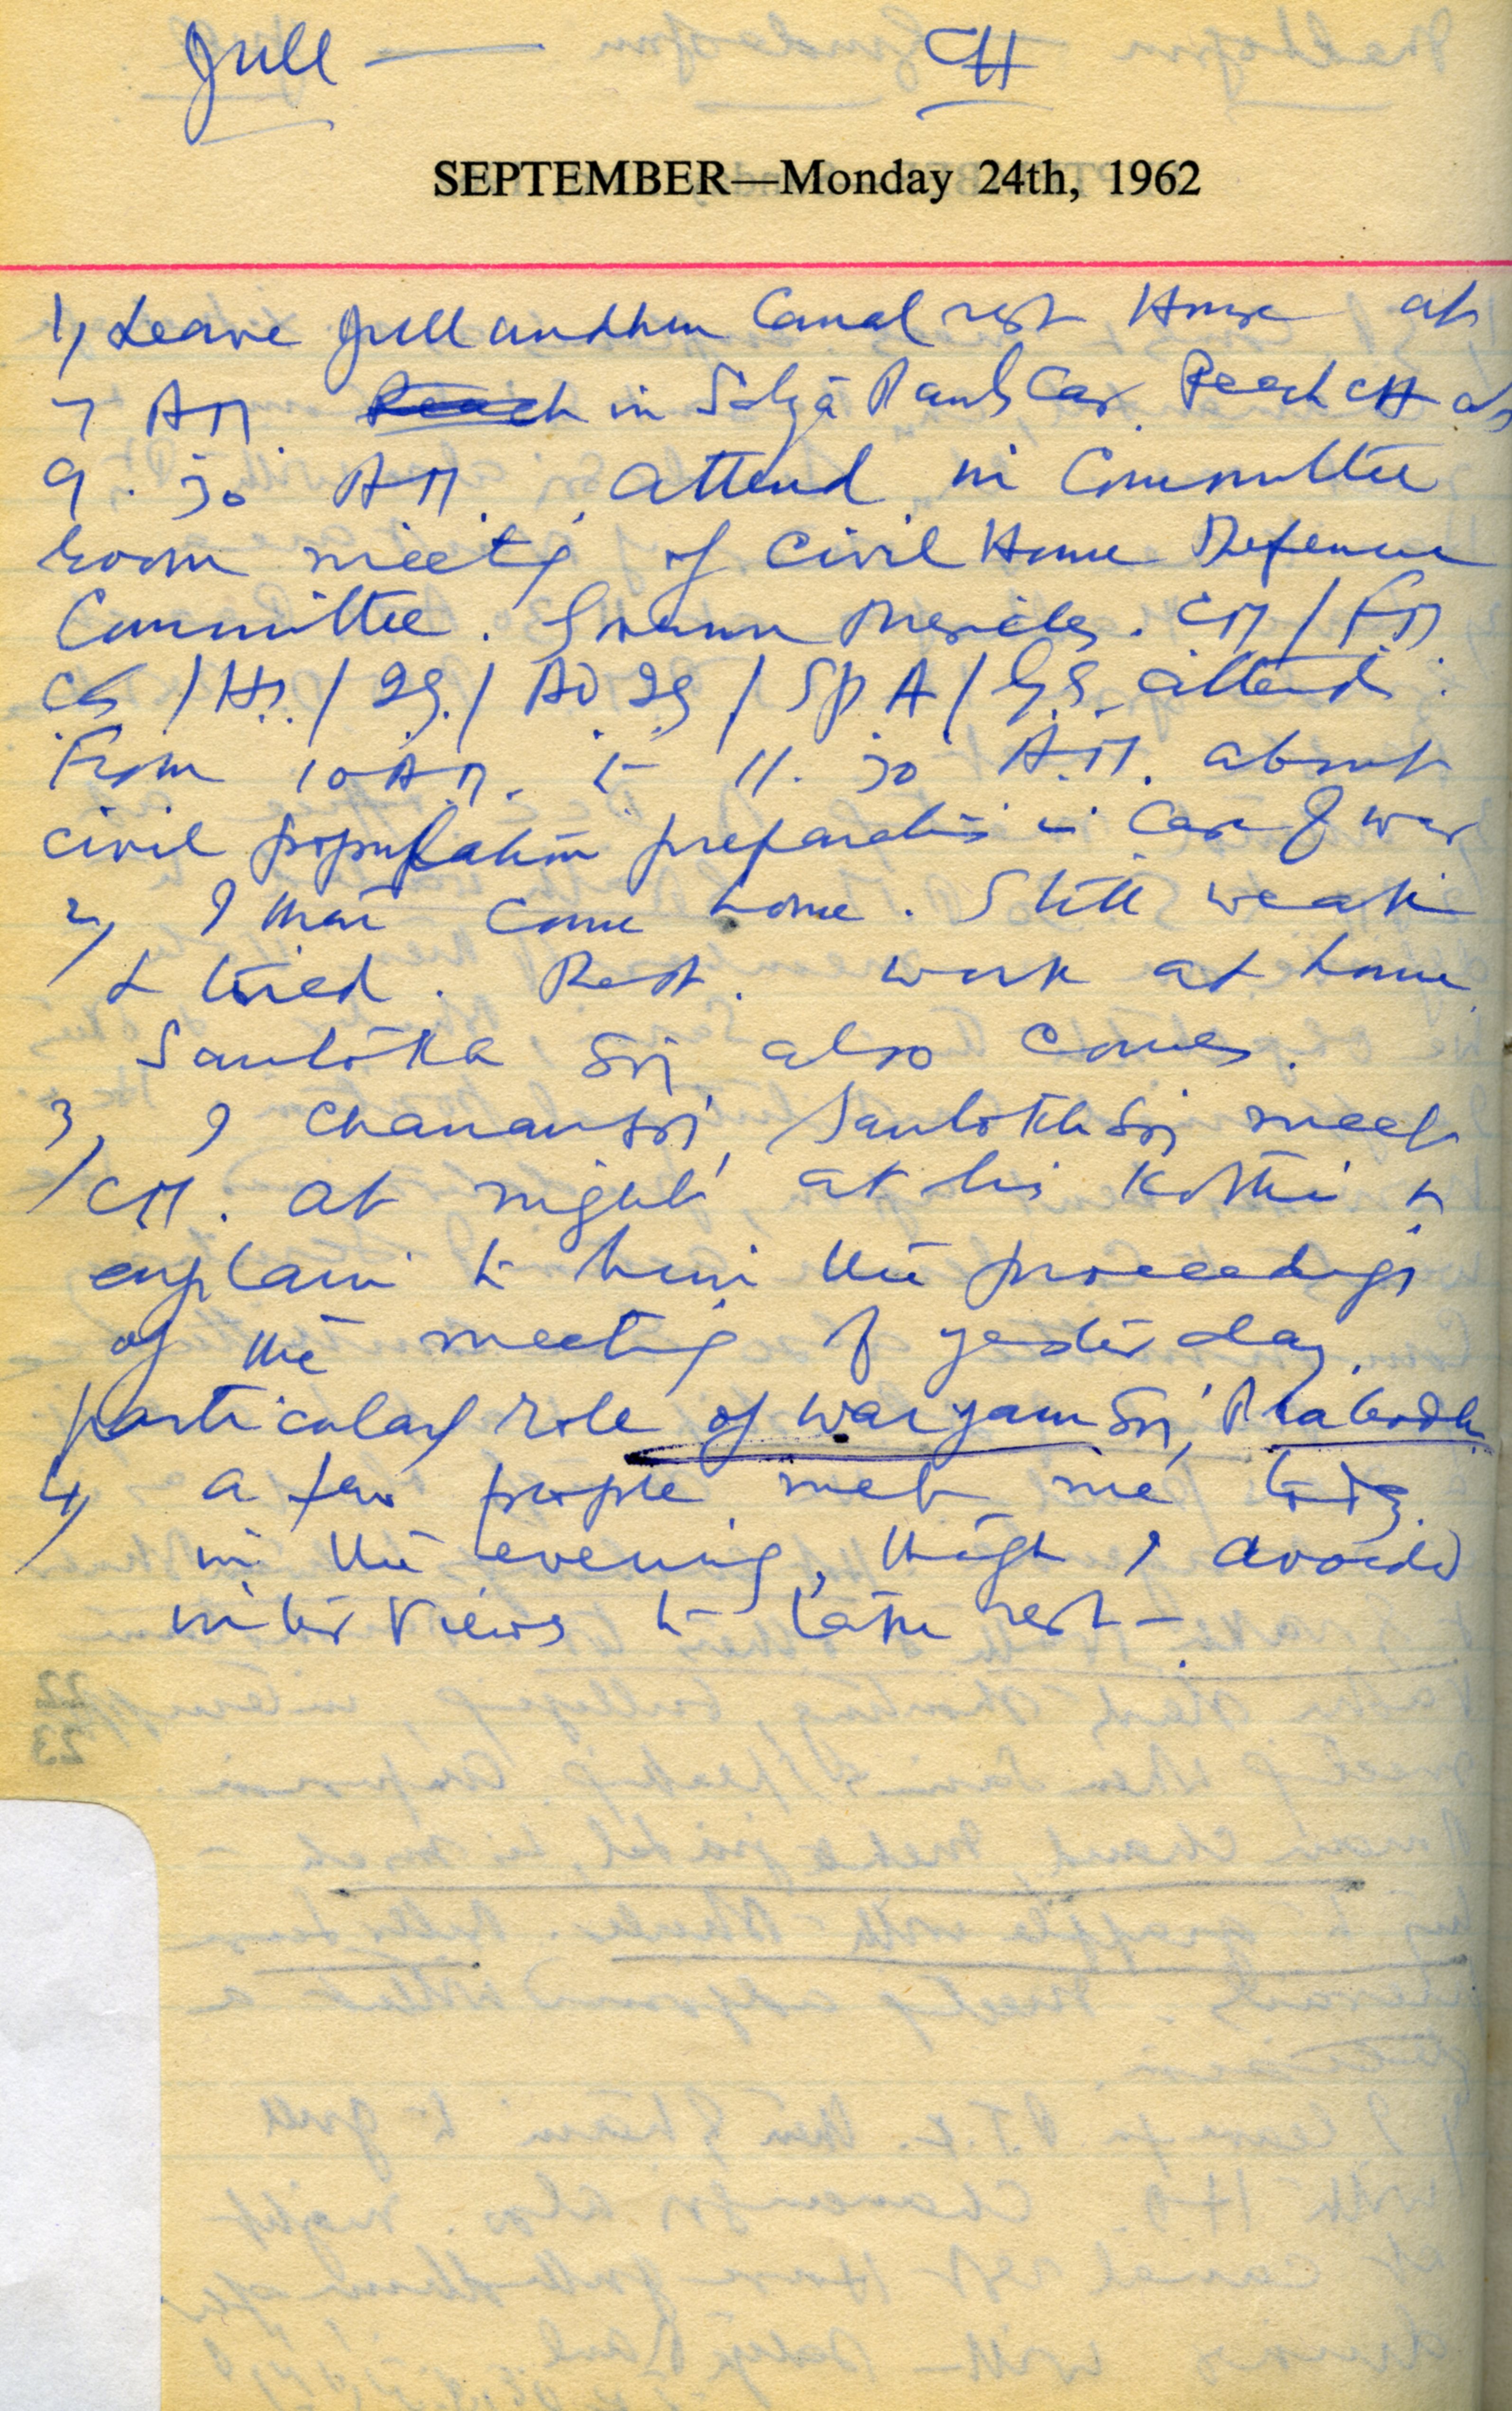 Jull — CH
SEPTEMBER—Monday 24th, 1962
1, Leave Jullundhur Canal rest House at
7 AM. Reach in Satya Paul's Car. Reach CH at
9.30 AM. Attend in Committee
room meeting of Civil Home Defence
Committee. Governor Presides. CM / FM
CS / HS. / IG. / AD IG / SPA / G.S. attend.
From 10 A.M. to 11.30 A.M. about
civil population preparations in Case of war
2, I then come home. Still weak
& tired. Rest. work at home
Santokh Sij also comes.
3, I Chanan Sij, Santokh Sij meet
CM. at night at his Kothi &
explain to him the proceedings
of the meeting of yesterday.
particularly role of Waryam Sij, Prabodh
4, a few people met me today.
in the evening, though I avoided
interviews to take rest —.
22
23